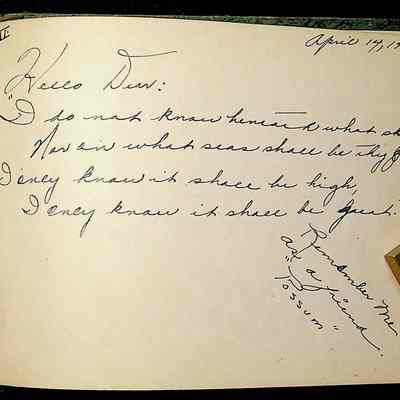 April 14, 19
Hello Dear:
"I do not know beneath what sk
Nor on what seas shall be thy
I only know it shall be high,
I only know it shall be great.
Remember Me
as a friend.
"Possum"